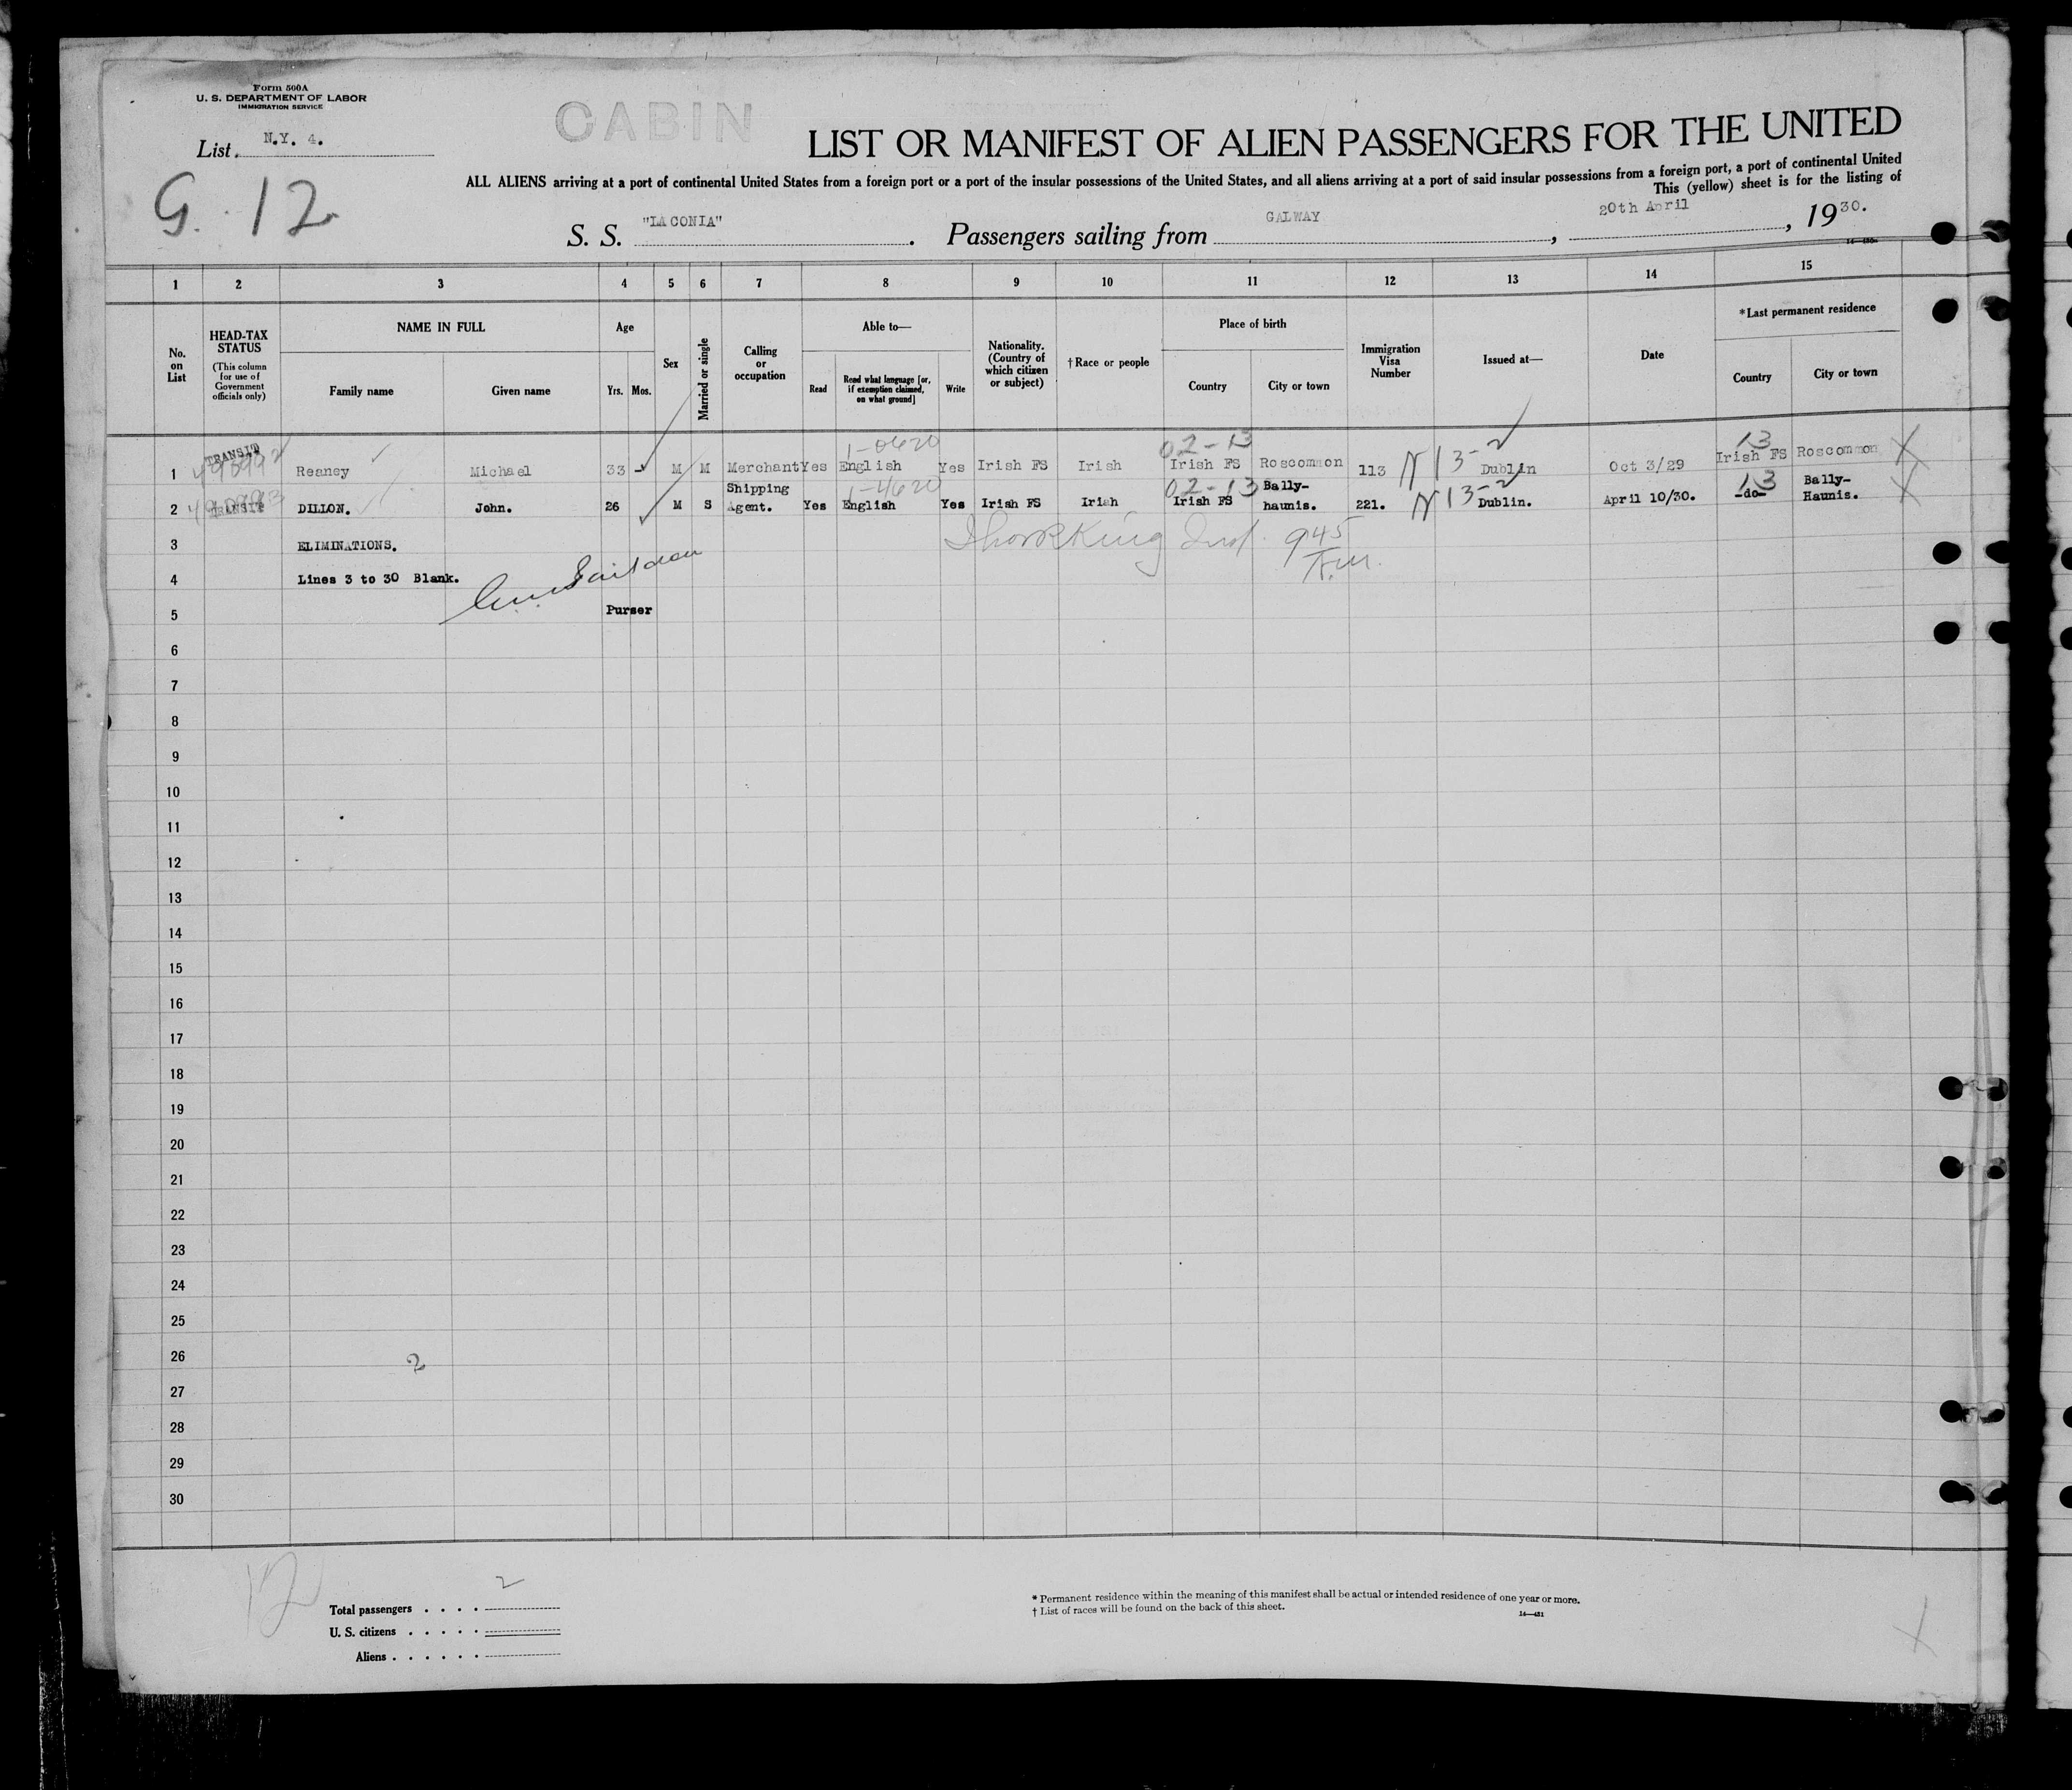 Form 500A
U. S. DEPARTMENT OF LABOR
IMMIGRATION SERVICE
CABIN
List N.Y. 4.
LIST OR MANIFEST OF ALIEN PASSENGERS FOR THE UNITED
G. 12
ALL ALIENS arriving at a port of continental United States from a foreign port or a port of the insular possessions of the United States, and all aliens arriving at a port of said insular possessions from a foreign port, a port of continental United
This (yellow) sheet is for the listing of
S. S. "LACONIA". Passengers sailing from GALWAY, 20th April, 1930.
1 2 3 4 5 6 7 8 9 10 11 12 13 14 15
No. on List
HEAD-TAX STATUS
(This column for use of Government officials only)
NAME IN FULL
Family name Given name
Age
Yrs. Mos.
Sex
Married or single
Calling or occupation
Able to—
Read
Read what language [or, if exemption claimed, on what ground]
Write
Nationality. (Country of which citizen or subject)
† Race or people
Place of birth
Country City or town
Immigration Visa Number
Issued at—
Date
*Last permanent residence
Country City or town
TRANSIT 1-0620 02-13 13
1 Reaney Michael 33 - M M Merchant Yes English Yes Irish FS Irish Irish FS Roscommon 113 N 13-2 Dublin Oct 3/29 Irish FS Roscommon X
TRANSIT 1-4620 02-13 13
2 DILLON. John. 26 M S Shipping Agent. Yes English Yes Irish FS Irish Irish FS Bally-haunis. 221. N 13-2 Dublin. April 10/30. -do- Bally-Haunis. X
3 ELIMINATIONS. 945
4 Lines 3 to 30 Blank.
5 Purser
6
7
8
9
10
11
12
13
14
15
16
17
18
19
20
21
22
23
24
25
26 2
27
28
29
30
12
Total passengers . . . . 2
U. S. citizens . . . . .
Aliens . . . . . .
* Permanent residence within the meaning of this manifest shall be actual or intended residence of one year or more.
† List of races will be found on the back of this sheet.
14—431
X